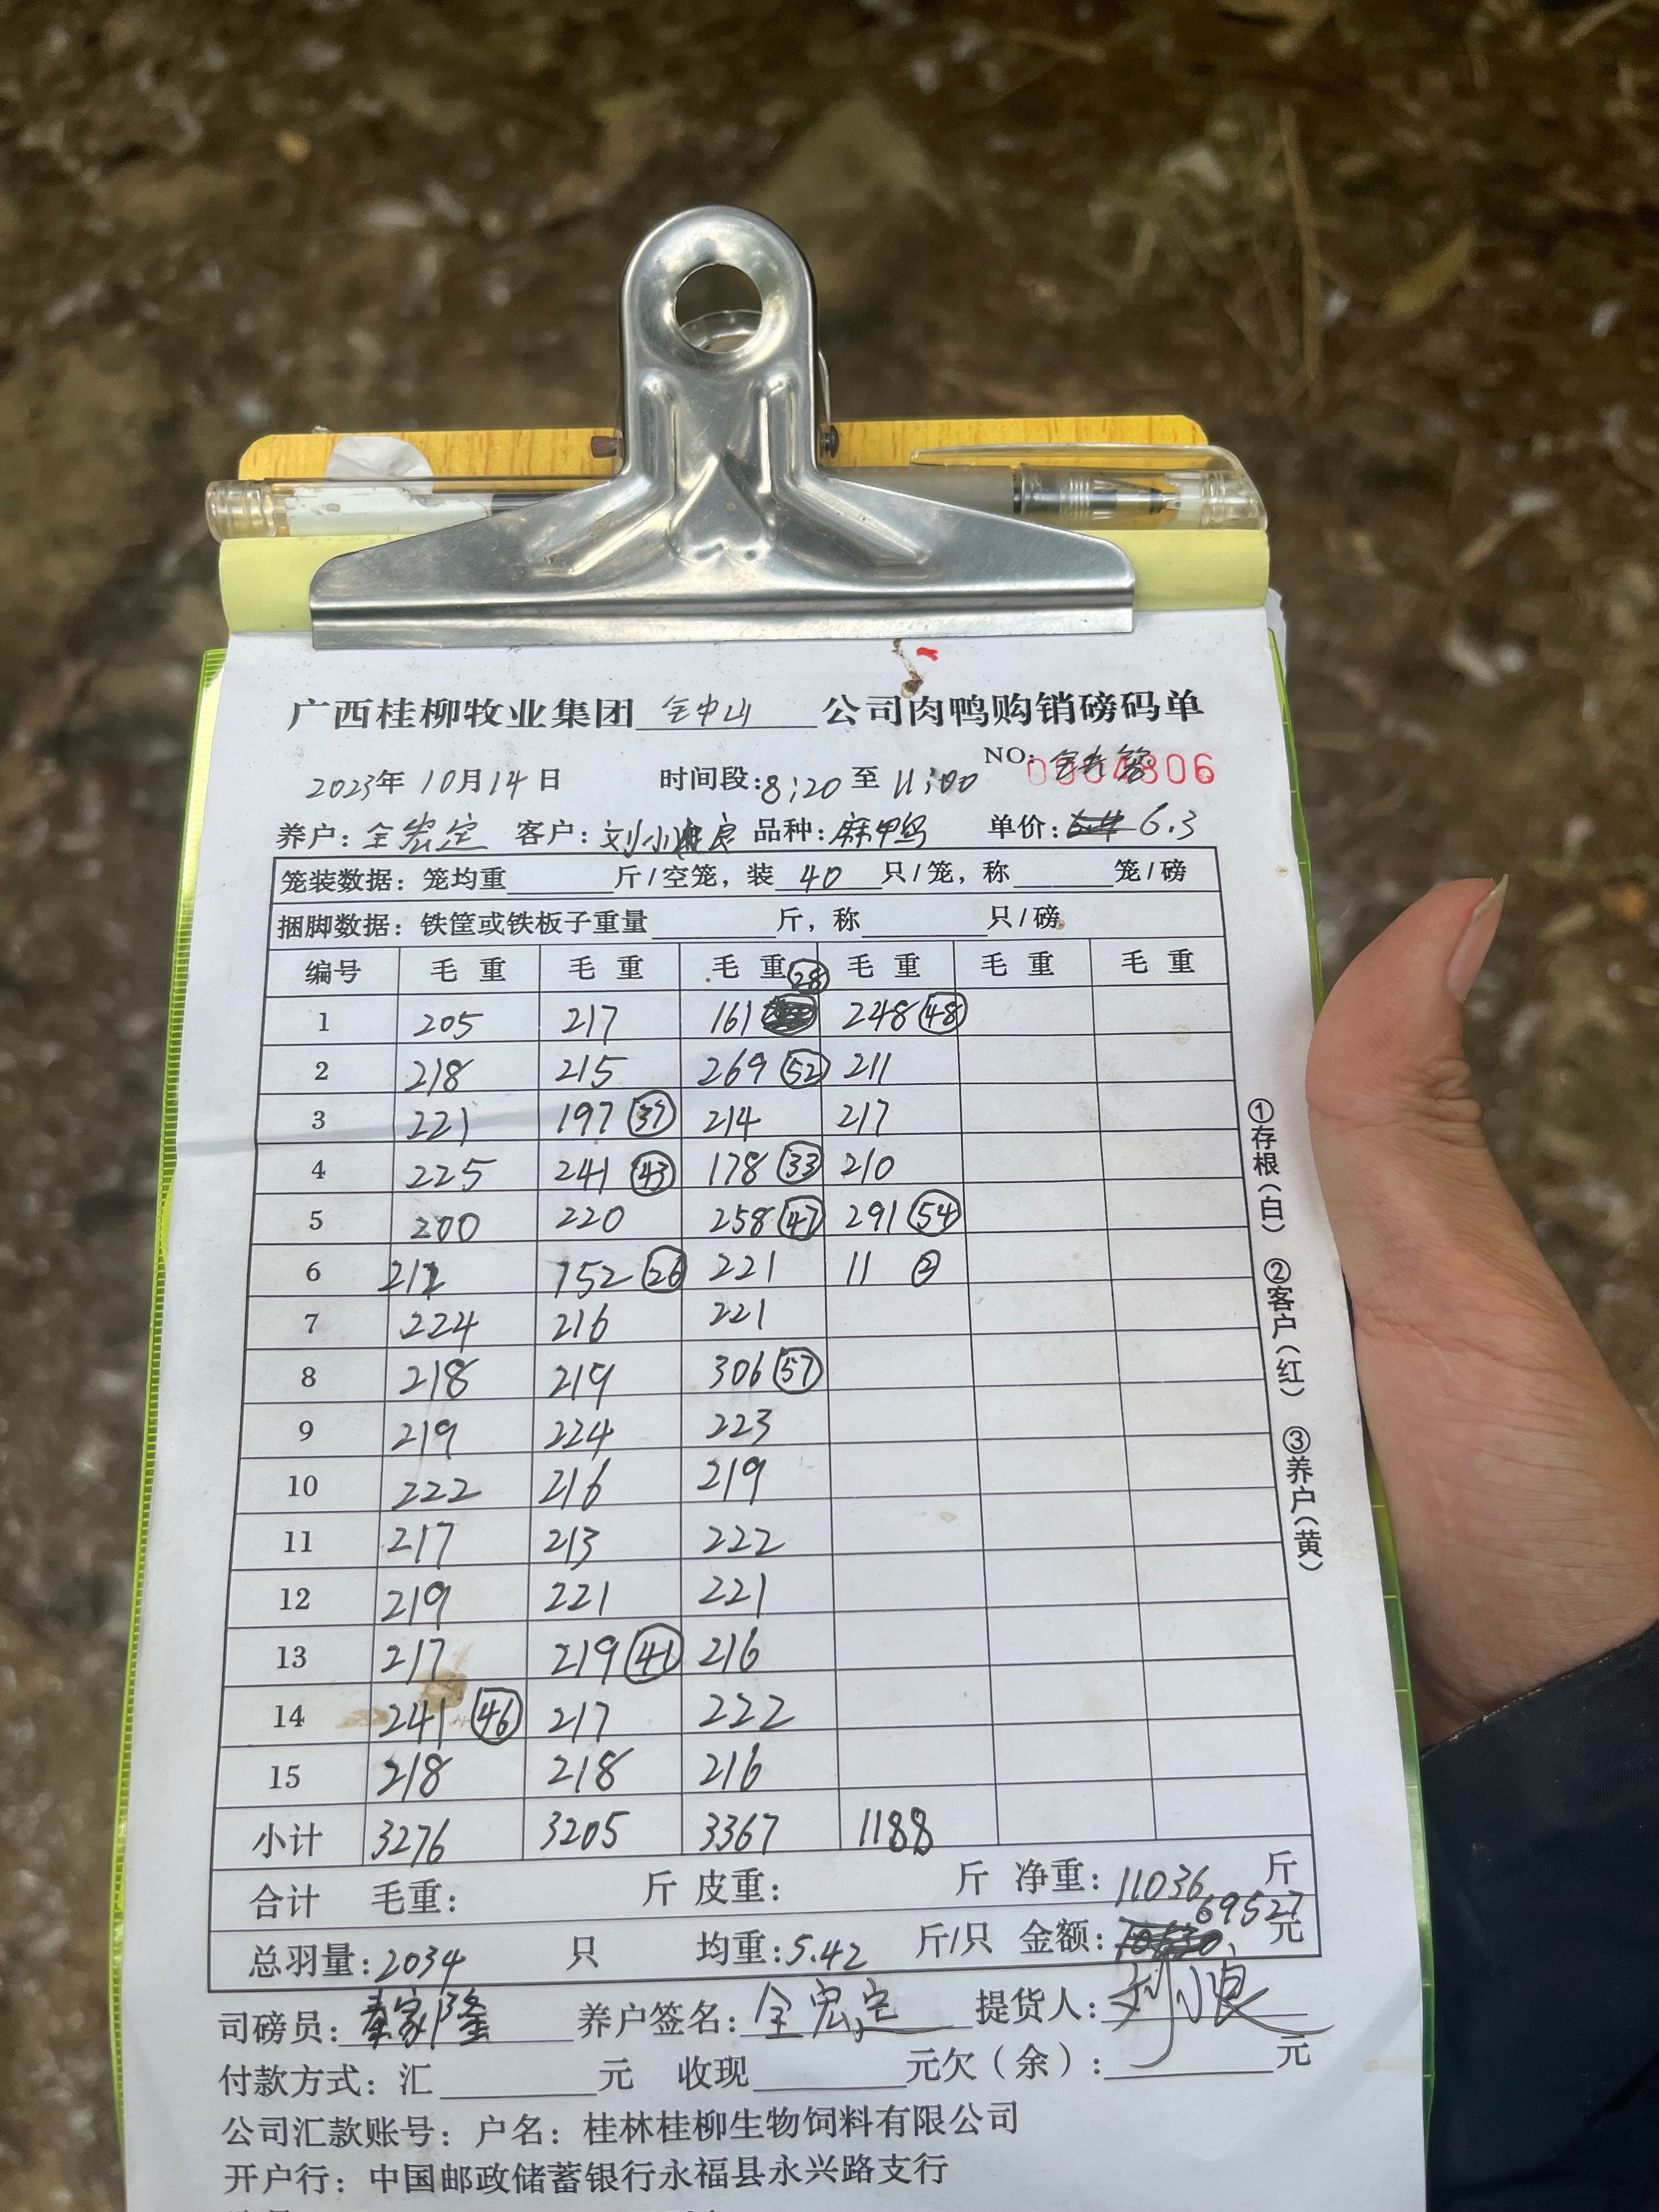 广西桂柳牧业集团 全中山 公司肉鸭购销磅码单
NO: 0004806
2023年 10月 14日 时间段:8:20 至 11:00
养户: 全宏定 客户: 刘小良 品种: 麻鸭 单价: 6.3
笼装数据: 笼均重 斤/空笼, 装 40 只/笼, 称 笼/磅
捆脚数据: 铁筐或铁板子重量 斤, 称 只/磅
编号 毛重 毛重 毛重 毛重 毛重 毛重
1 205 217 161 (28) 248 (48)
2 218 215 269 (52) 211
3 221 197 (37) 214 217
4 225 241 (43) 178 (33) 210
5 200 220 258 (47) 291 (54)
6 212 152 (26) 221 11 (2)
7 224 216 221
8 218 219 306 (57)
9 219 224 223
10 222 216 219
11 217 213 222
12 219 221 221
13 217 219 (41) 216
14 241 (46) 217 222
15 218 218 216
小计 3276 3205 3367 1188
合计 毛重: 斤 皮重: 斤 净重: 11036 斤
总羽量: 2034 只 均重: 5.42 斤/只 金额: 69527 元
司磅员: 秦家隆 养户签名: 全宏定 提货人: 刘小良
付款方式: 汇 元 收现 元欠(余): 元
公司汇款账号: 户名: 桂林桂柳生物饲料有限公司
开户行: 中国邮政储蓄银行永福县永兴路支行
①存根(白) ②客户(红) ③养户(黄)